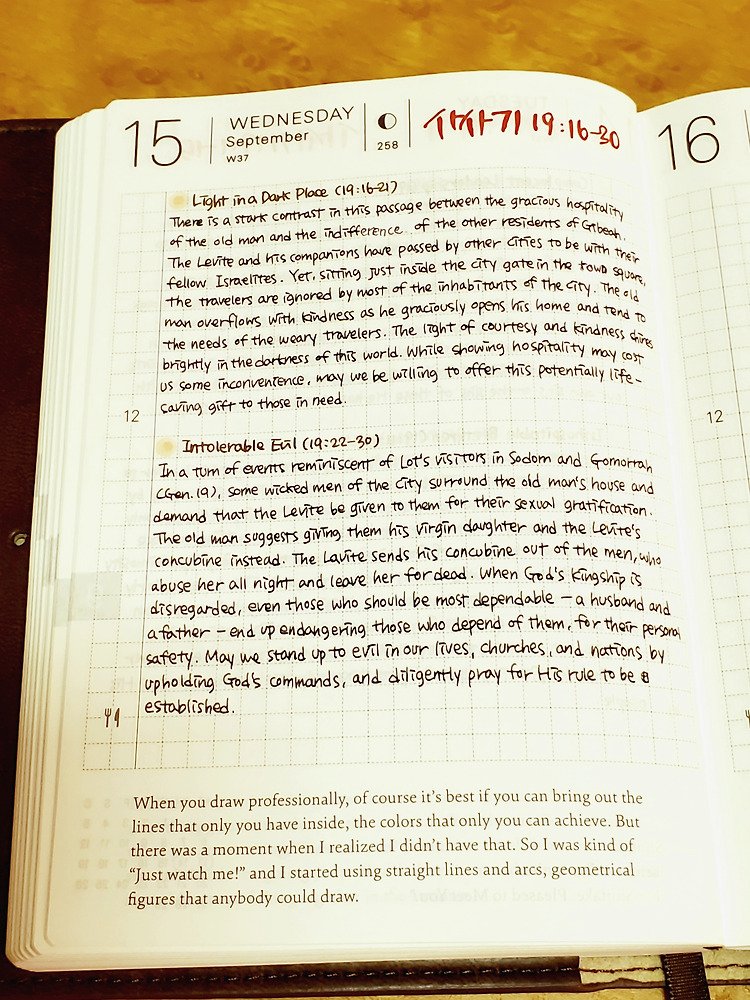 15
WEDNESDAY
September
W37
258
사사기 19:16-30
16
Light in a Dark Place (19:16-21)
There is a stark contrast in this passage between the gracious hospitality
of the old man and the indifference of the other residents of Gibeah.
The Levite and his companions have passed by other cities to be with their
fellow Israelites. Yet, sitting just inside the city gate in the town square,
the travelers are ignored by most of the inhabitants of the city. The old
man overflows with kindness as he graciously opens his home and tend to
the needs of the weary travelers. The light of courtesy and kindness shines
brightly in the darkness of this world. While showing hospitality may cost
us some inconvenience, may we be willing to offer this potentially life-
saving gift to those in need.
12
12
Intolerable Evil (19:22-30)
In a turn of events reminiscent of Lot's visitors in Sodom and Gomorrah
(Gen. 19), some wicked men of the city surround the old man's house and
demand that the Levite be given to them for their sexual gratification.
The old man suggests giving them his virgin daughter and the Levite's
concubine instead. The Lavite sends his concubine out of the men, who
abuse her all night and leave her for dead. When God's Kingship is
disregarded, even those who should be most dependable – a husband and
a father – end up endangering those who depend of them, for their personal
safety. May we stand up to evil in our lives, churches, and nations by
upholding God's commands, and diligently pray for His rule to be
established.
When you draw professionally, of course it's best if you can bring out the
lines that only you have inside, the colors that only you can achieve. But
there was a moment when I realized I didn't have that. So I was kind of
“Just watch me!” and I started using straight lines and arcs, geometrical
figures that anybody could draw.